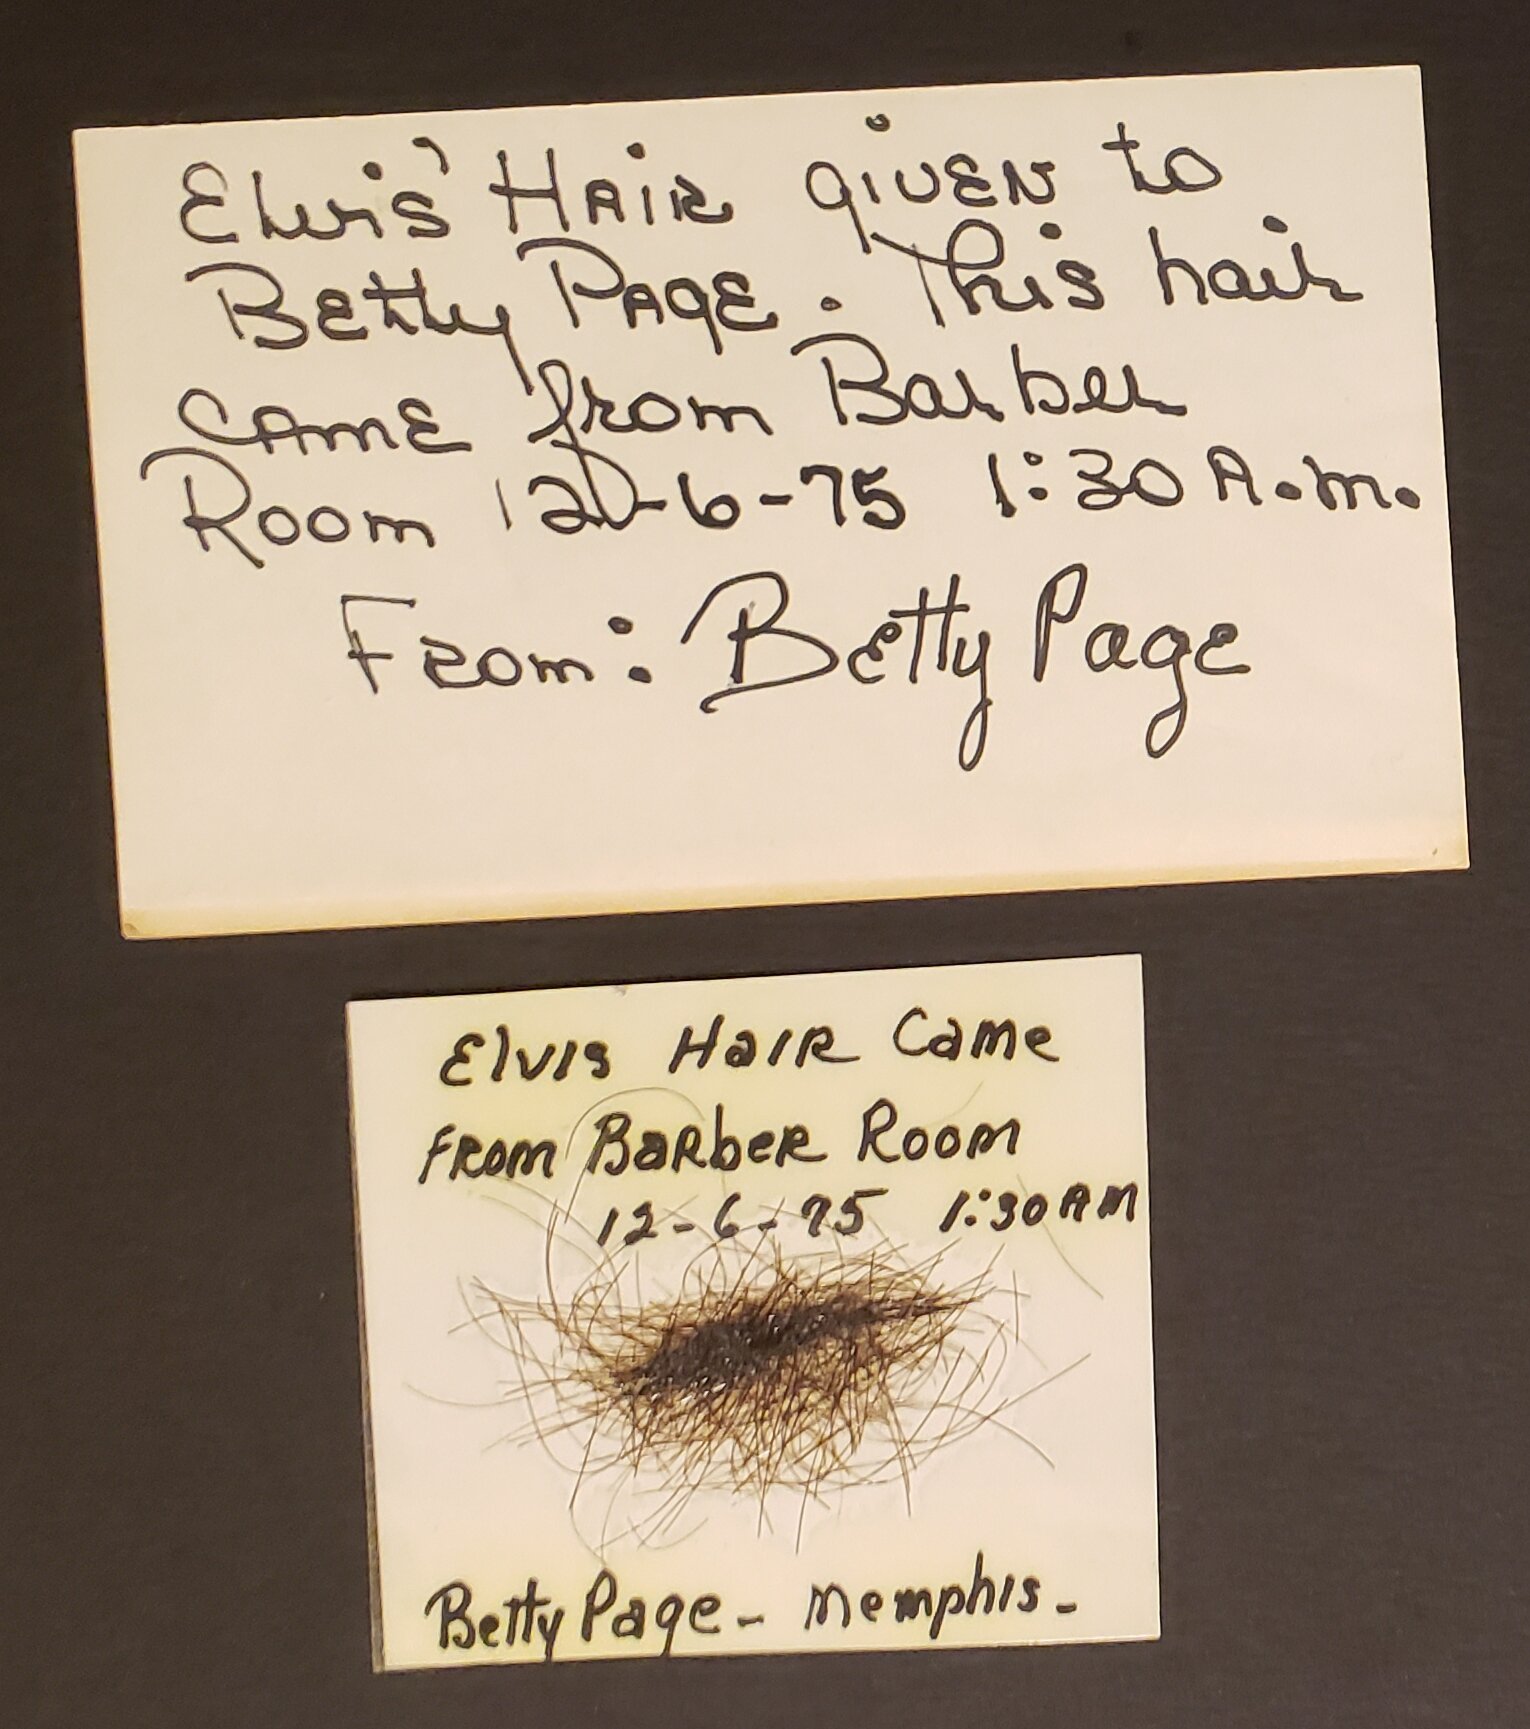 Elvis' HAIR given to
Betty PAGE. This hair
CAME from Barber
Room 12-6-75 1:30 A.M.
From: Betty Page
Elvis HaIR Came
FROM BaRbeR ROOM
12-6-75 1:30 AM
Betty Page - Memphis -